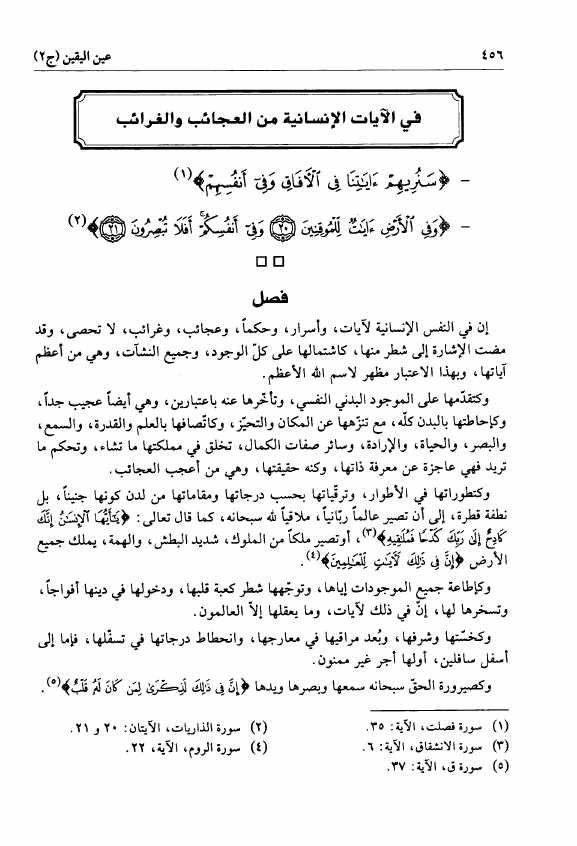 ٤٥٦
عين اليقين (ج٢)
في الآيات الإنسانية من العجائب والغرائب
- ﴿سَنُرِيهِمْ ءَايَٰتِنَا فِي ٱلْآفَاقِ وَفِىٓ أَنفُسِهِمْ﴾(١)
- ﴿وَفِي ٱلْأَرْضِ ءَايَٰتٌ لِّلْمُوقِنِينَ ٢٠ وَفِىٓ أَنفُسِكُمْ ۚ أَفَلَا تُبْصِرُونَ ٢١﴾(٢)
□ □
فصل
إن في النفس الإنسانية لآيات، وأسرار، وحكماً، وعجائب، وغرائب، لا تحصى، وقد
مضت الإشارة إلى شطر منها، كاشتمالها على كلّ الوجود، وجميع النشآت، وهي من أعظم
آياتها، وبهذا الاعتبار مظهر لاسم الله الأعظم.
وكتقدّمها على الموجود البدني النفسي، وتأخّرها عنه باعتبارين، وهي أيضاً عجيب جداً،
وكإحاطتها بالبدن كلّه، مع تنزّهها عن المكان والتحيّز، وكاتّصافها بالعلم والقدرة، والسمع،
والبصر، والحياة، والإرادة، وسائر صفات الكمال، تخلق في مملكتها ما تشاء، وتحكم ما
تريد فهي عاجزة عن معرفة ذاتها، وكنه حقيقتها، وهي من أعجب العجائب.
وكتطوراتها في الأطوار، وترقّياتها بحسب درجاتها ومقاماتها من لدن كونها جنيناً، بل
نطفة قطرة، إلى أن تصير عالماً ربّانياً، ملاقياً لله سبحانه، كما قال تعالى: ﴿يَٰٓأَيُّهَا ٱلْإِنسَٰنُ إِنَّكَ
كَادِحٌ إِلَىٰ رَبِّكَ كَدْحًا فَمُلَٰقِيهِ﴾(٣)، أوتصير ملكاً من الملوك، شديد البطش، والهمة، يملك جميع
الأرض ﴿إِنَّ فِي ذَٰلِكَ لَآيَٰتٍ لِّلْعَٰلِمِينَ﴾(٤).
وكإطاعة جميع الموجودات إياها، وتوجّهها شطر كعبة قلبها، ودخولها في دينها أفواجاً،
وتسخرها لها، إنّ في ذلك لآيات، وما يعقلها إلاّ العالمون.
وكخسّتها وشرفها، وبُعد مراقيها في معارجها، وانحطاط درجاتها في تسفّلها، فإما إلى
أسفل سافلين، أولها أجر غير ممنون.
وكصيرورة الحقّ سبحانه سمعها وبصرها ويدها ﴿إِنَّ فِي ذَٰلِكَ لَذِكْرَىٰ لِمَن كَانَ لَهُۥ قَلْبٌ﴾(٥).
(١) سورة فصلت، الآية: ٣٥.
(٢) سورة الذاريات، الآيتان: ٢٠ و ٢١.
(٣) سورة الانشقاق، الآية: ٦.
(٤) سورة الروم، الآية، ٢٢.
(٥) سورة ق، الآية: ٣٧.